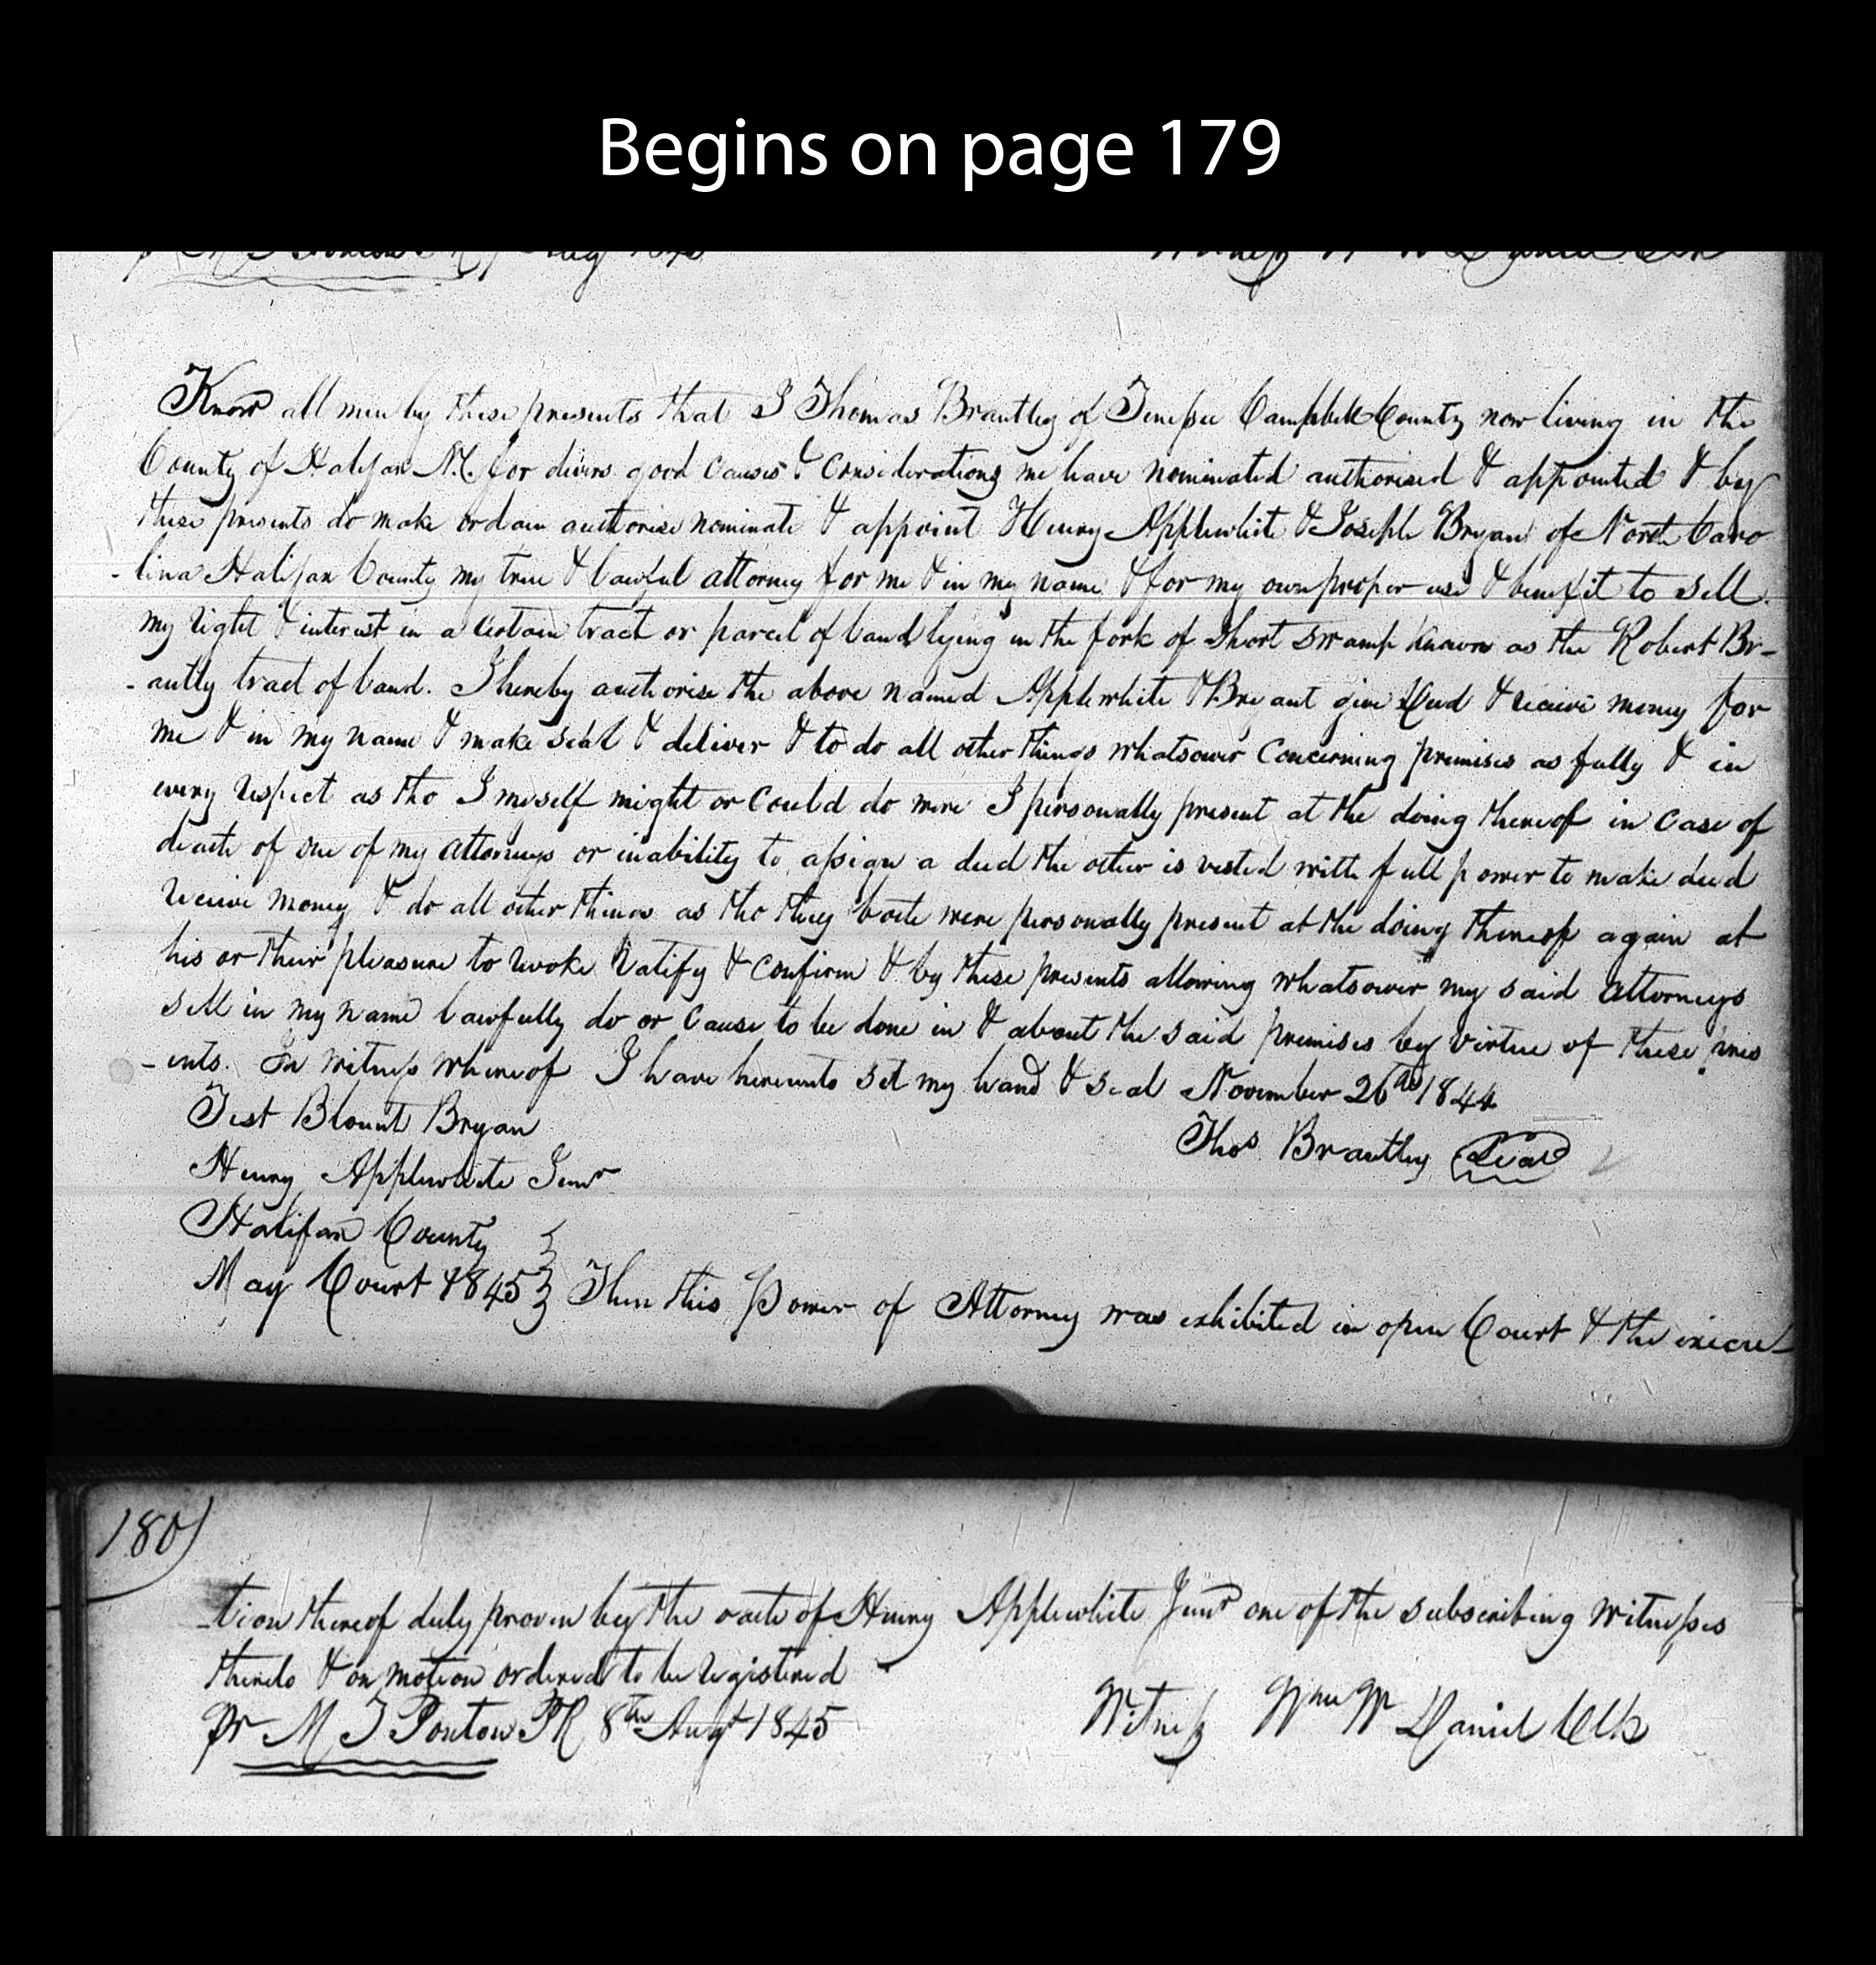 Begins on page 179
Know all men by these presents that I Thomas Brantley of Tenessee Campbell County now living in the
County of Halifax N.C. for divers good causes & considerations me have nominated authorised & appointed & by
these presents do make ordain authorise nominate & appoint Henry Applewhite & Joseph Bryan of North Caro
-lina Halifax County my true & lawful attorney for me & in my name & for my own proper use & benefit to sell
my right & interest in a certain tract or parcel of land lying in the fork of Short Swamp known as the Robert Br-
-antly tract of land. I hereby authorise the above named Applewhite & Bryant give Deed & receive money for
me & in my name & make seal & deliver & to do all other things whatsower concerning premises as fully & in
every respect as tho I myself might or could do were I personally present at the doing thereof in case of
death of one of my attorneys or inability to assign a deed the other is vested with full power to make deed
receive money & do all other things as tho they both were personally present at the doing thereof again at
his or their pleasure to revoke ratify & confirm & by these presents allowing whatsower my said attorneys
sell in my name lawfully do or cause to be done in & about the said premises by virtue of these pres
-ents. In witness whereof I have hereunto set my hand & seal November 26th 1844
Test Blount Bryan
Thos Brantley Seal
Henry Applewhite Junr
Halifax County
May Court 1845 Then this Power of Attorney was exhibited in open Court & the execu-
180)
-tion thereof duly proven by the oath of Henry Applewhite Junr one of the subscribing witnesses
thereto & on motion ordered to be registered
pr M J Ponton PR 8th Augt 1845
Witness Wm W Daniel Clk